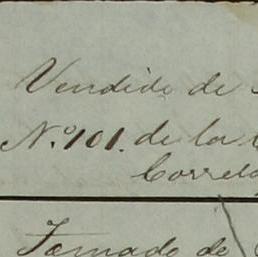 Vendido de
N.º 101. de la
Correla
Tomado de